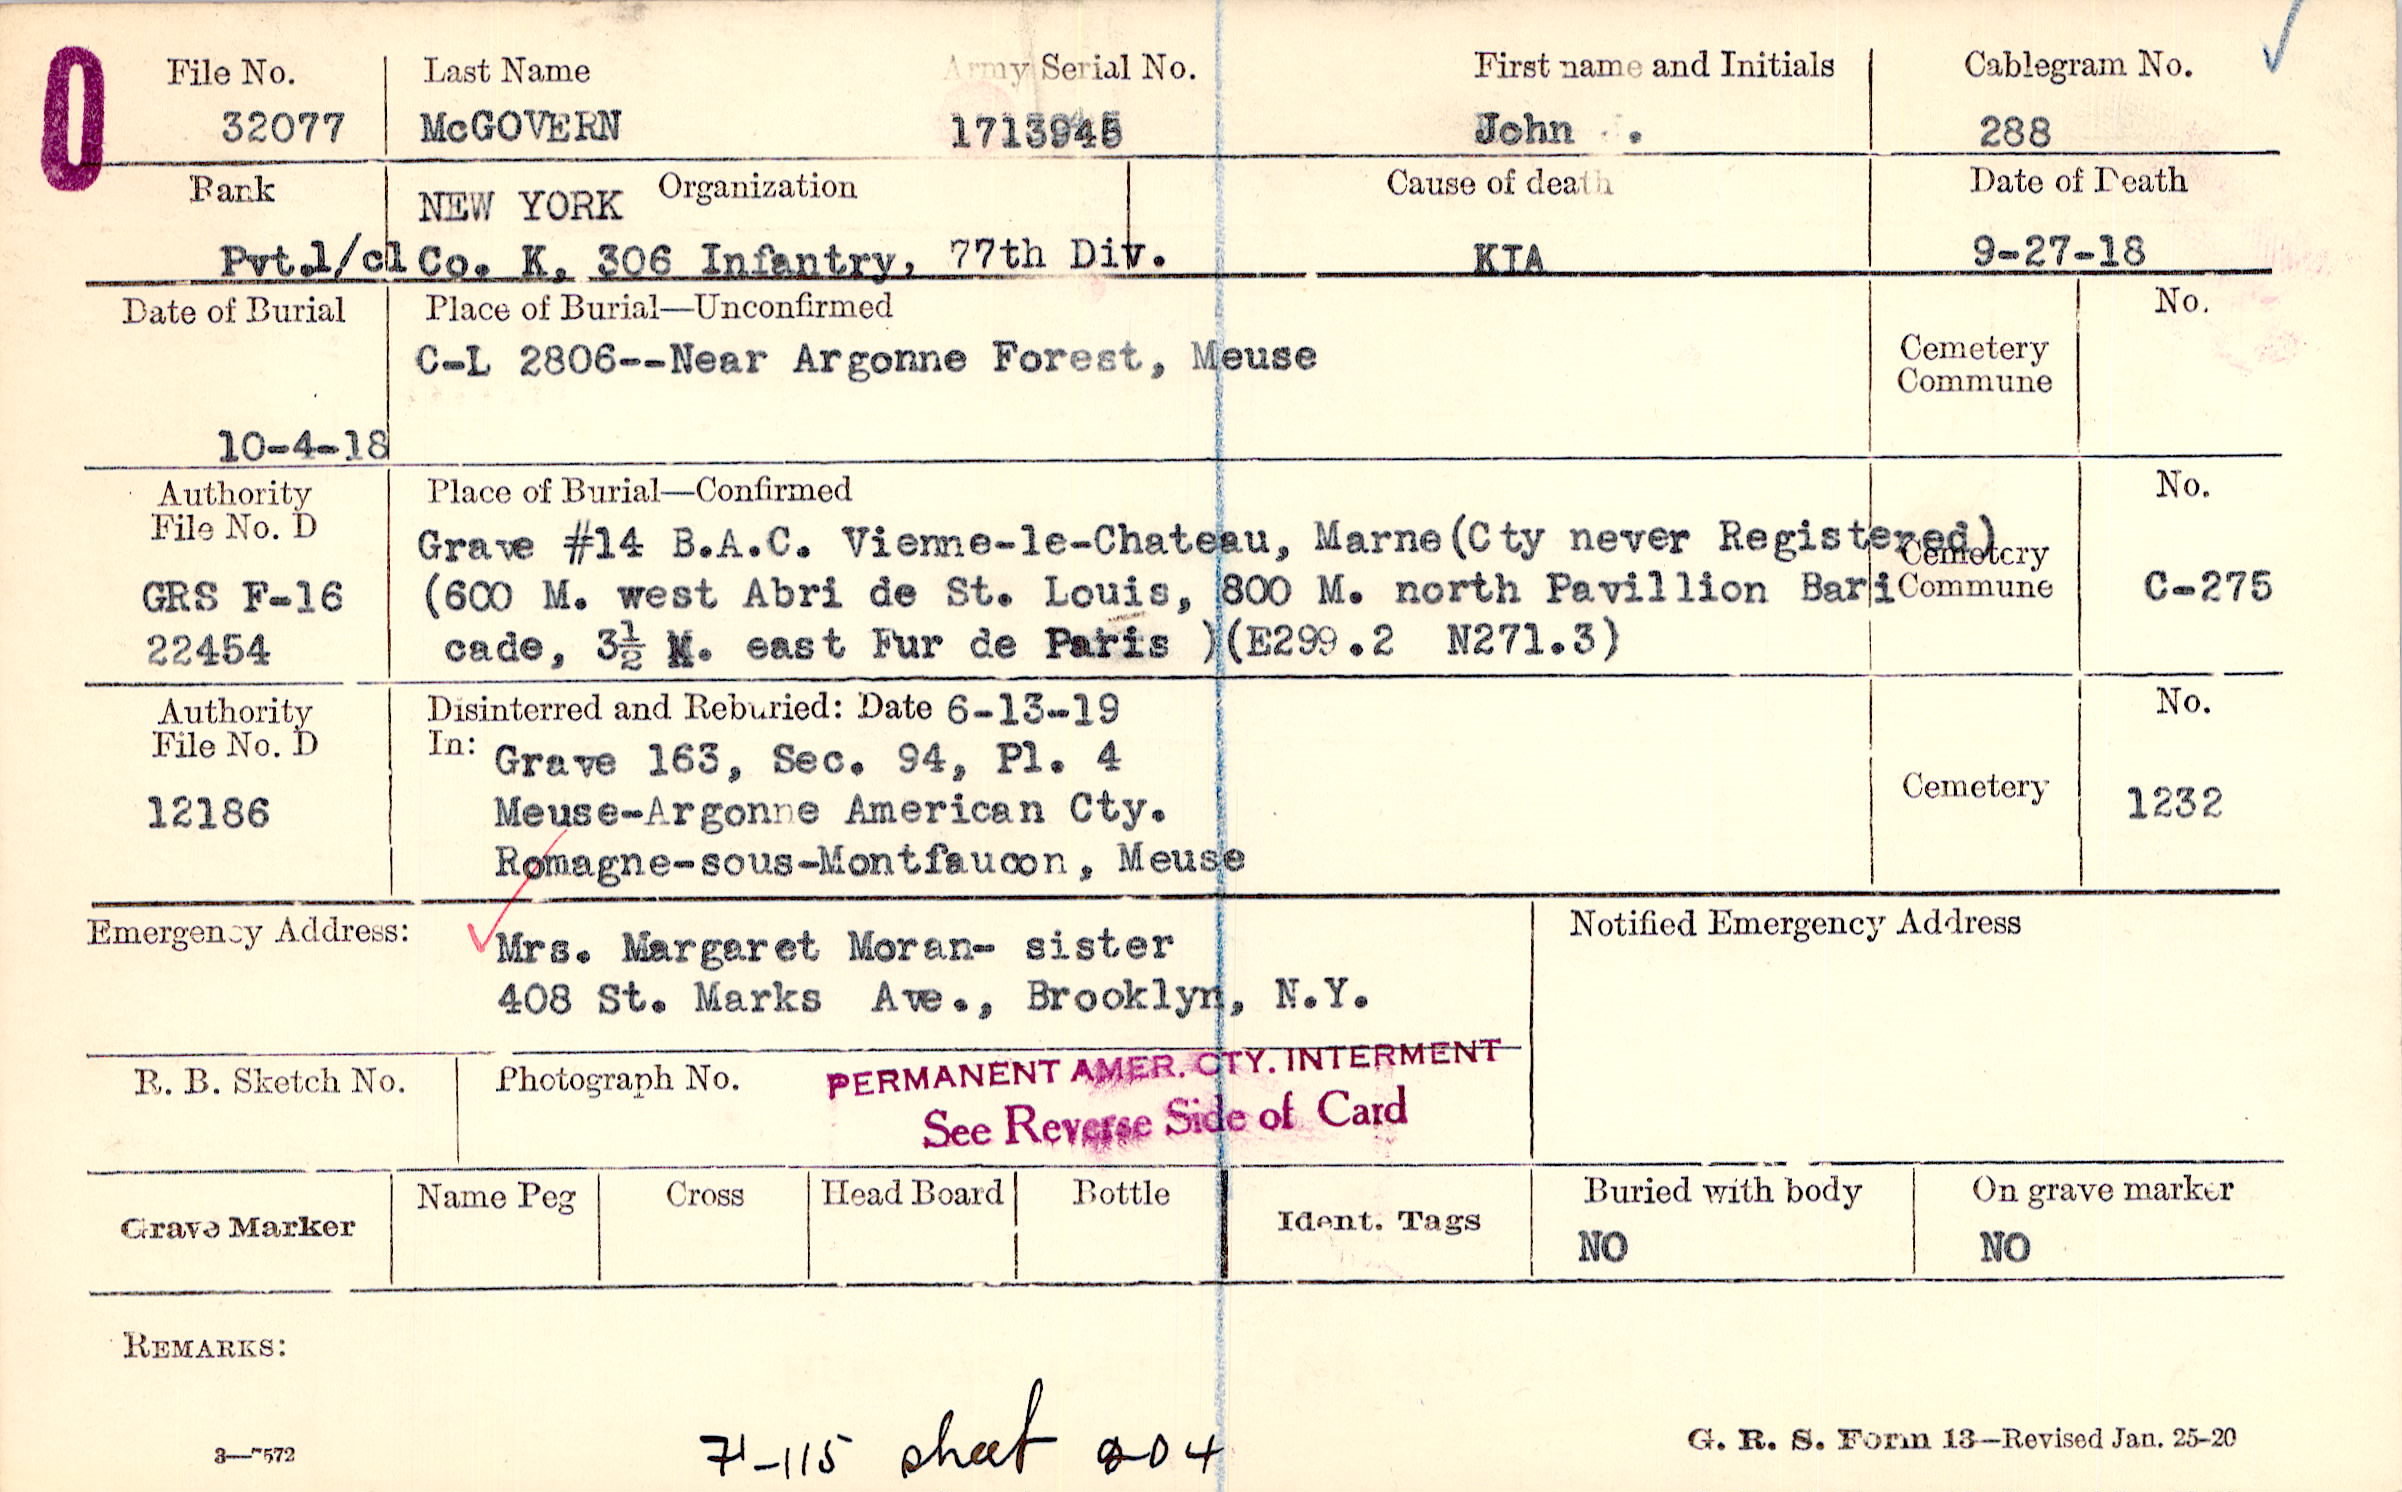 0
File No. Last Name Army Serial No. First name and Initials Cablegram No.
32077 McGOVERN John . 288
Rank Organization Cause of death Date of Death
NEW YORK
Pvt.1/cl Co. K, 306 Infantry, 77th Div. KIA 9-27-18
Date of Burial Place of Burial—Unconfirmed No.
C-L 2806--Near Argonne Forest, Meuse
Cemetery
Commune
10-4-18
Authority Place of Burial—Confirmed No.
File No. D
Grave #14 B.A.C. Vienne-le-Chateau, Marne(Cty never Registered)
Cemetery
GRS F-16 (600 M. west Abri de St. Louis, 800 M. north Pavillion Bari Commune C-275
22454 cade, 3½ M. east Fur de Paris )(E299.2 N271.3)
Authority Disinterred and Reburied: Date 6-13-19 No.
File No. D In: Grave 163, Sec. 94, Pl. 4
12186 Meuse-Argonne American Cty. Cemetery 1232
Romagne-sous-Montfaucon, Meuse
Emergency Address: Notified Emergency Address
Mrs. Margaret Moran- sister
408 St. Marks Ave., Brooklyn, N.Y.
R. B. Sketch No. Photograph No. PERMANENT AMER. CTY. INTERMENT
See Reverse Side of Card
Grave Marker Name Peg Cross Head Board Bottle Ident. Tags Buried with body On grave marker
NO NO
REMARKS:
3—7572 sheet G. R. S. Form 13—Revised Jan. 25-20